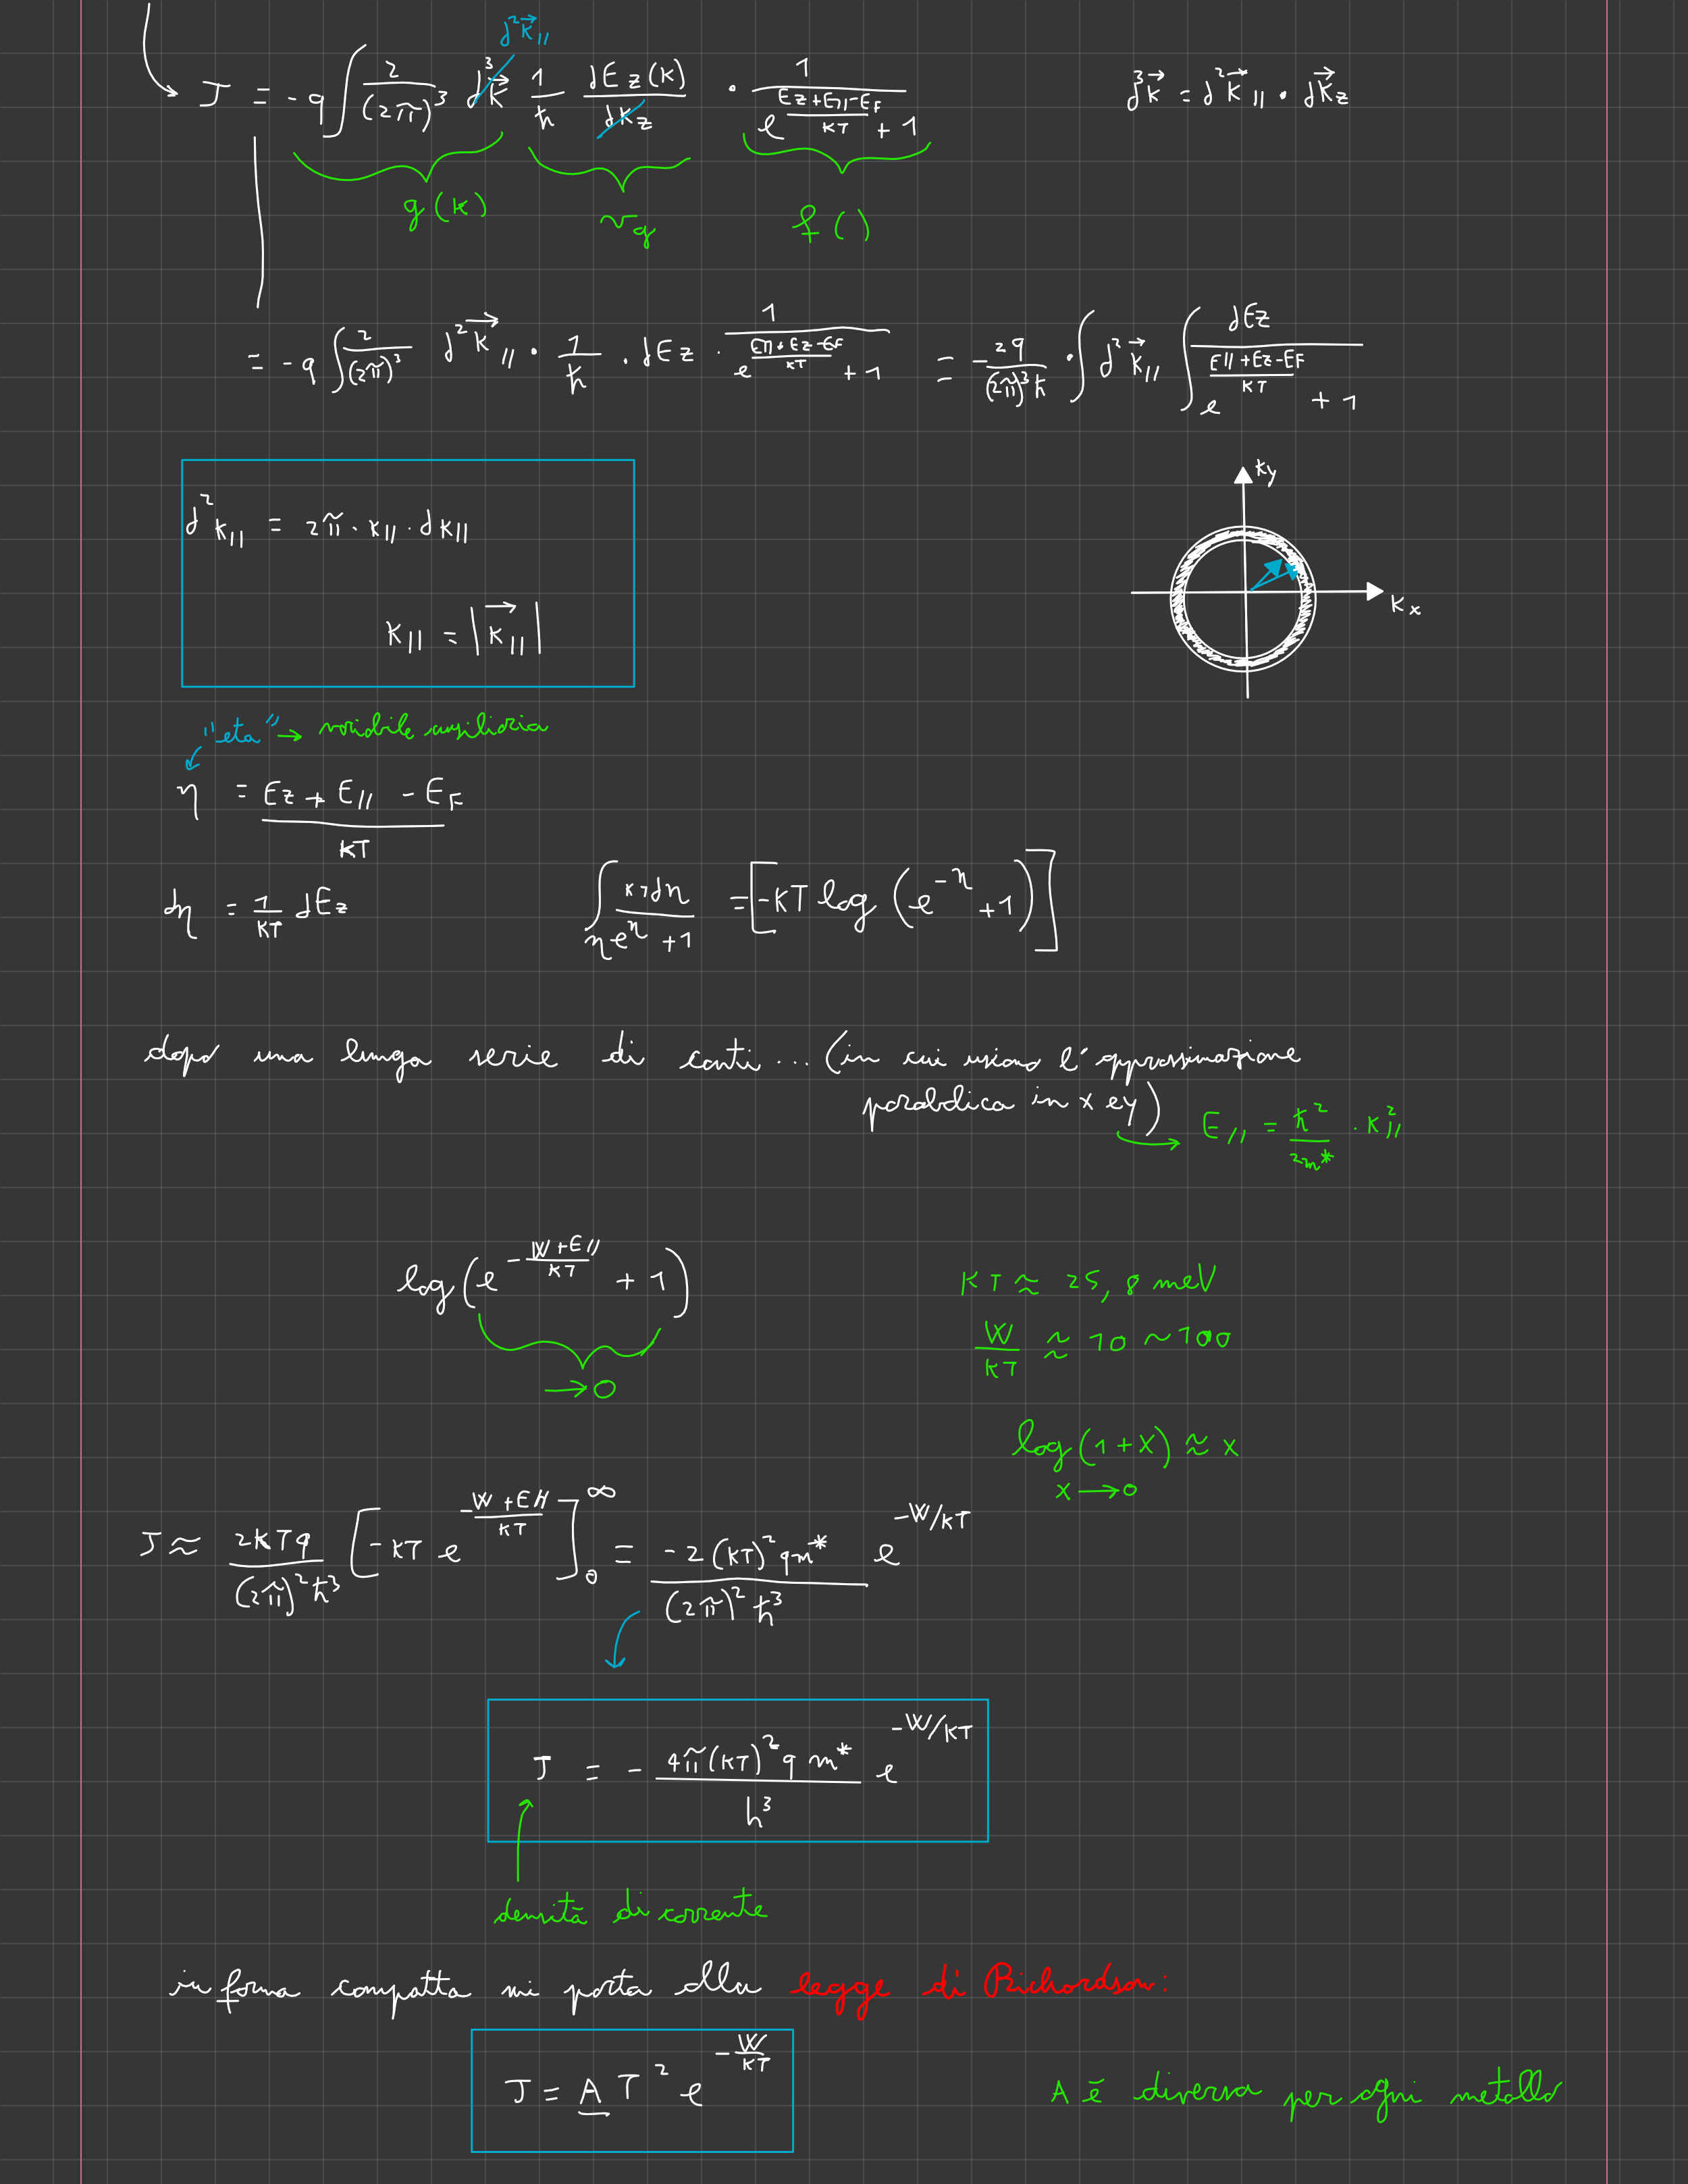 d²k⃗∥
J = -q ∫ 2/(2π)³ d³k⃗ 1/ħ dEz(k)/dkz · 1/(e^((Ez+E∥-EF)/KT) + 1)
d³k⃗ = d²k⃗∥ · dk⃗z
g(k) vg f( )
= -q ∫ 2/(2π)³ d²k⃗∥ · 1/ħ · dEz · 1/(e^((E∥+Ez-EF)/KT) + 1) = -2q/((2π)³ħ) · ∫ d²k⃗∥ ∫ dEz/(e^((E∥+Ez-EF)/KT) + 1)
d²k∥ = 2π · k∥ · dk∥
k∥ = |k⃗∥|
ky
kx
"eta" → variabile ausiliaria
η = (Ez + E∥ - EF)/KT
dη = 1/KT dEz
∫η KT dη/(e^η + 1) = [-KT log (e^-η + 1)]
dopo una lunga serie di conti ... (in cui usiamo l'approssimazione
parabolica in x e y)
E∥ = ħ²/2m* · k∥²
log (e^(-(W+E∥)/KT) + 1)
→ 0
KT ≈ 25,8 meV
W/KT ≈ 10 ~ 100
log (1+x) ≈ x
x → 0
J ≈ 2KTq/((2π)²ħ³) [-KT e^(-(W+E∥)/KT)]₀^∞ = -2(KT)²qm*/((2π)²ħ³) e^(-W/KT)
J = - 4π(KT)²q m*/h³ e^(-W/KT)
densità di corrente
in forma compatta mi porta alla legge di Richardson:
J = A T² e^(-W/KT)
A è diversa per ogni metallo